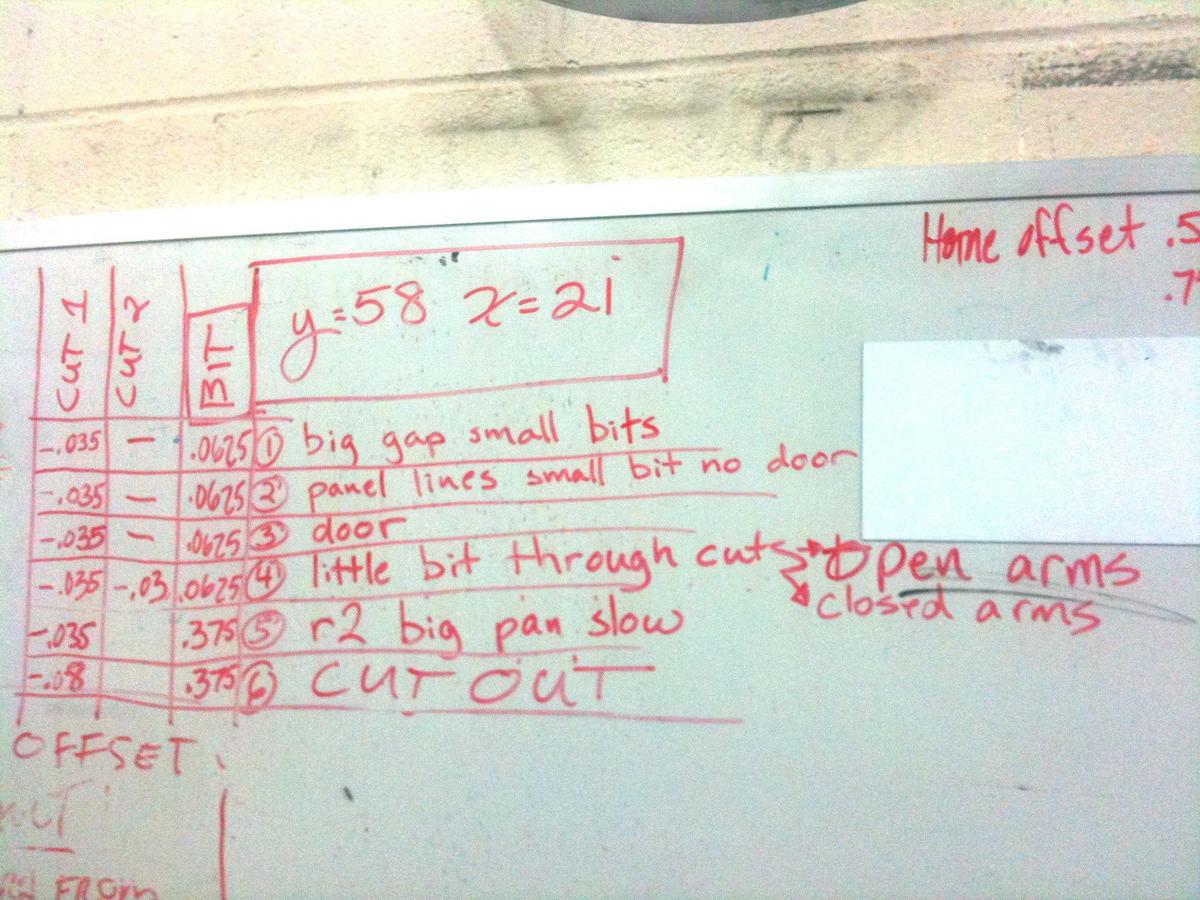 Home offset .5
.7
CUT 1 CUT 2 BIT y=58 x=21
-.035 — .0625 ① big gap small bits
-.035 — .0625 ② panel lines small bit no door
-.035 — .0625 ③ door
-.035 -.03 .0625 ④ little bit through cuts → Open arms
closed arms
-.035 .375 ⑤ r2 big pan slow
-.08 .375 ⑥ CUT OUT
OFFSET
FROM